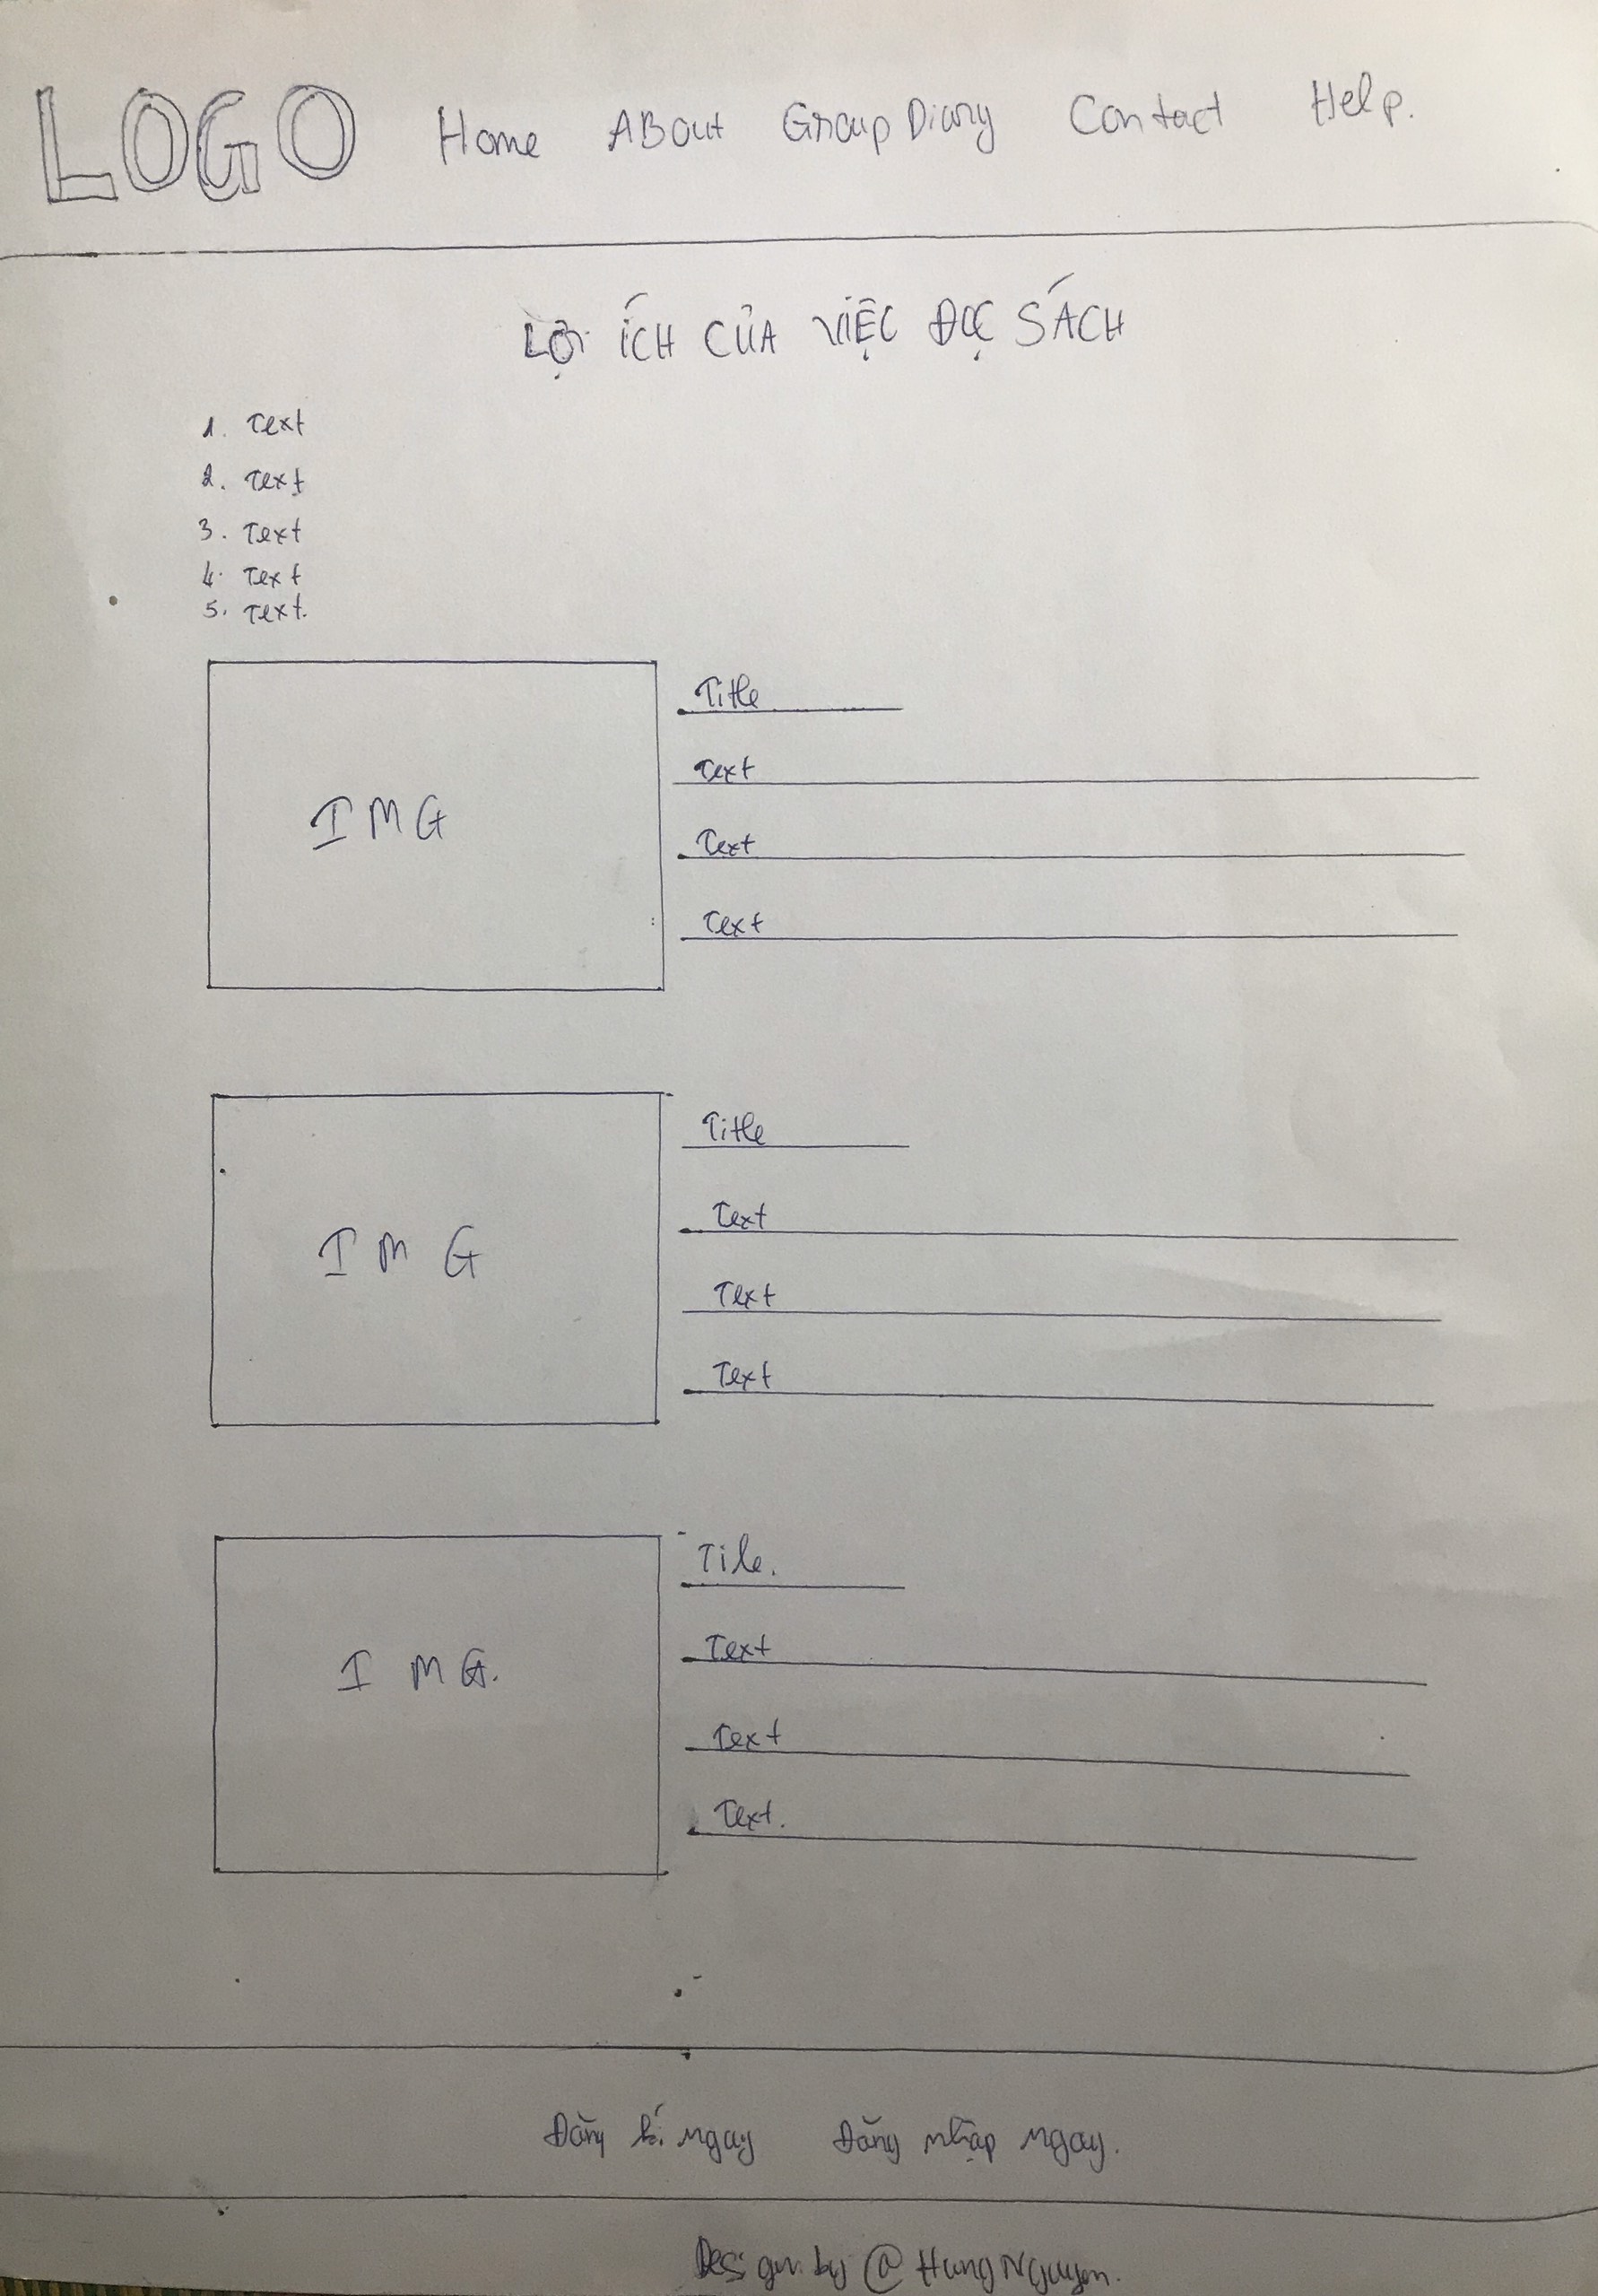 LOGO Home ABout Group Diary Contact Help.
LỢI ÍCH CỦA VIỆC ĐỌC SÁCH
1. Text
2. Text
3. Text
4. Text
5. Text.
Title
Text
IMG
Text
Text
Title
Text
IMG
Text
Text
Tile.
Text
IMG.
Text
Text.
Đăng kí ngay Đăng nhập ngay.
Design by @HungNguyen.